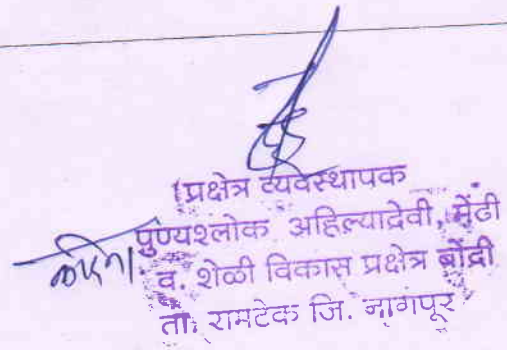 प्रक्षेत्र व्यवस्थापक
पुण्यश्लोक अहिल्यादेवी, मेंढी
व. शेळी विकास प्रक्षेत्र बोंद्री
ता. रामटेक जि. नागपूर